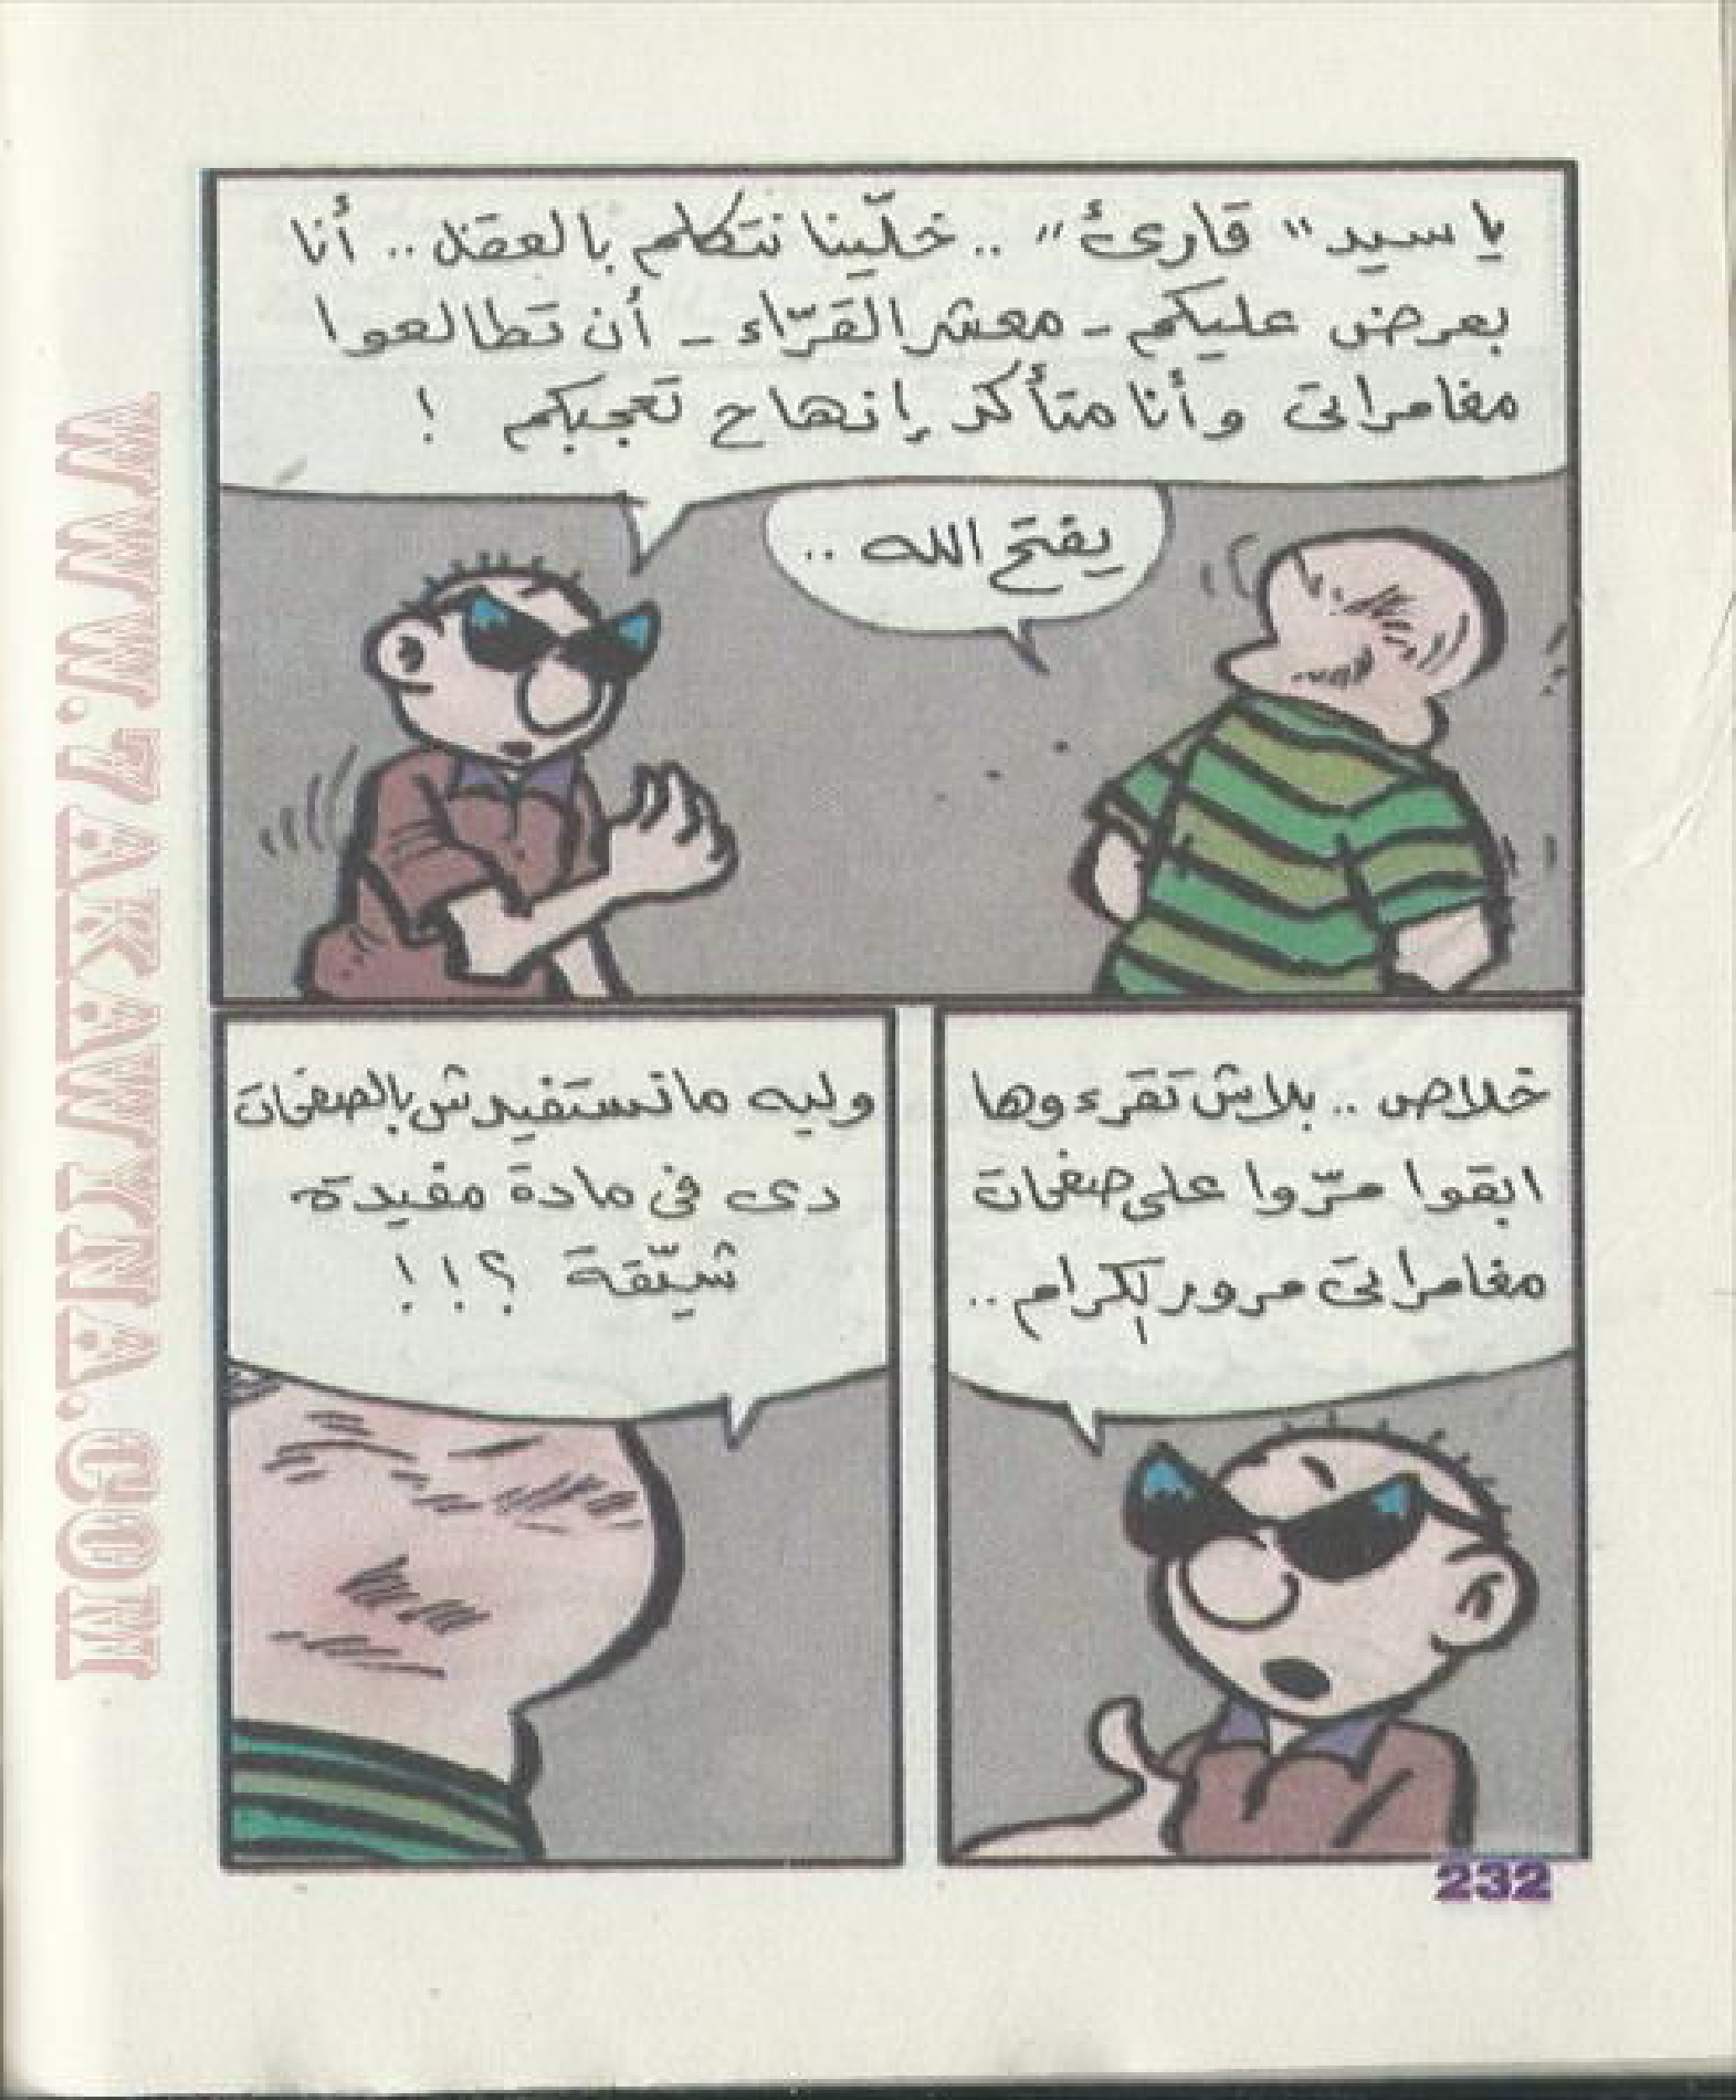 يا سيد "قارئ" .. خلّينا نتكلم بالعقل .. أنا
بعرض عليكم - معشر القرّاء - أن تطالعوا
مغامراتى وأنا متأكد إنها ح تعجبكم !
يفتح الله ..
خلاص .. بلاش تقرءوها
ابقوا مرّوا على صفحات
مغامراتى مرور الكرام ..
وليه ما تستفيدش بالصفحات
دى فى مادة مفيدة
شيّقة ؟!!
232
WWW.7AKAWITNA.COM